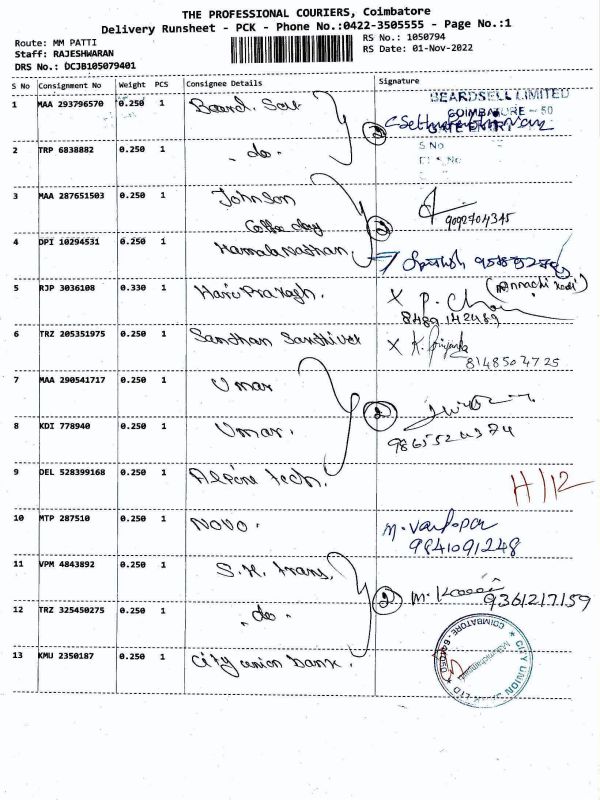 THE PROFESSIONAL COURIERS, Coimbatore
Delivery Runsheet - PCK - Phone No.:0422-3505555 - Page No.:1
Route: MM PATTI
RS No.: 1050794
Staff: RAJESHWARAN
RS Date: 01-Nov-2022
DRS No.: DCJB105079401
S No Consignment No Weight PCS Consignee Details Signature
BEARDSELL LIMITED
1 MAA 293796570 0.250 1
COIMBATORE - 50
GATE ENTRY
S No
2 TRP 6838882 0.250 1 - do -
3 MAA 287651503 0.250 1 Johnson
2
9092704345
Coffee day
4 DPI 10294531 0.250 1 Kamalanathan
5 RJP 3036108 0.330 1 Hari Prakash.
X P.
8489142469
6 TRZ 205351975 0.250 1 X K.
8148504725
7 MAA 290541717 0.250 1 Umar
2
8 KDI 778940 0.250 1 Umar.
9 DEL 528399168 0.250 1 Alpine tech.
H/12
10 MTP 287510 0.250 1 NOVO.
9841091248
11 VPM 4843892 0.250 1 S.K. trans.
2 M. 9361217159
12 TRZ 325450275 0.250 1 - do -
13 KMU 2350187 0.250 1 City union bank.
CITY UNION BANK LTD
COIMBATORE